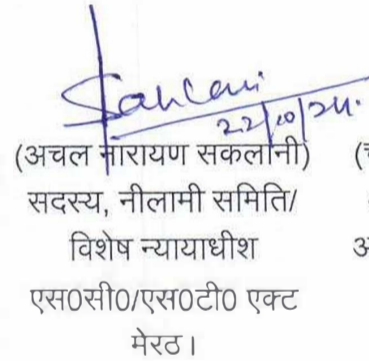 Saklani
22/10/24.
(अचल नारायण सकलानी)
सदस्य, नीलामी समिति/
विशेष न्यायाधीश
एस0सी0/एस0टी0 एक्ट
मेरठ।